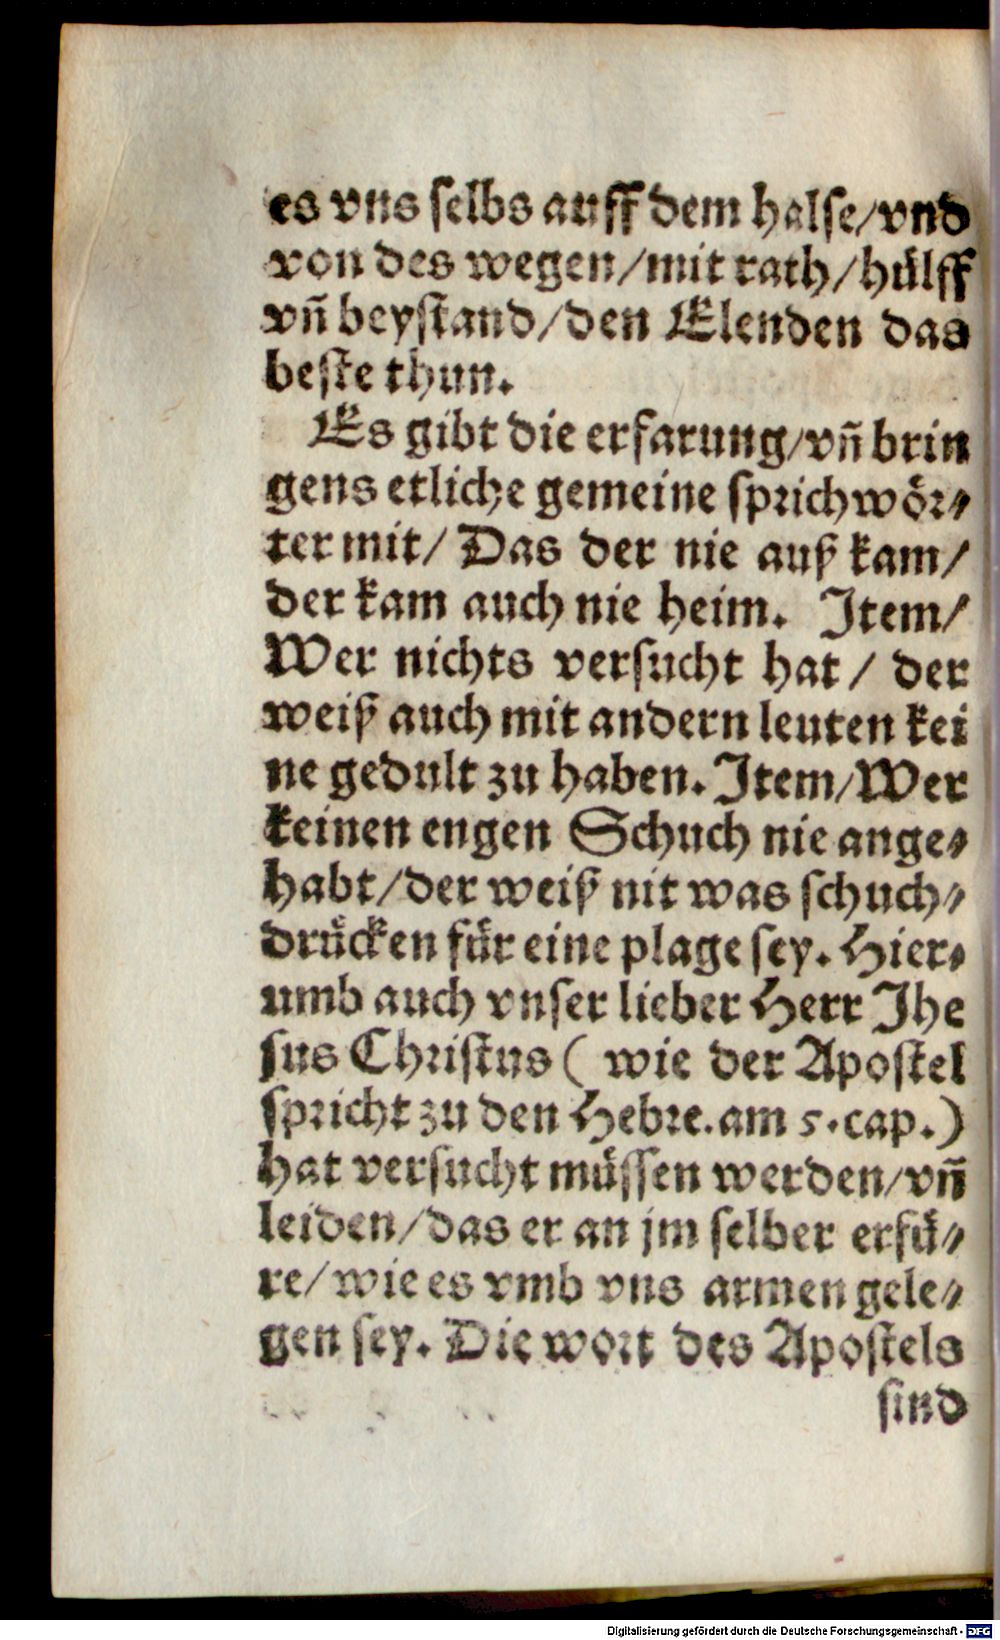 es vns selbs auff dem halse/vnd
von des wegen/mit rath/hülff
vñ beystand/den Elenden das
beste thun.
Es gibt die erfarung/vñ brin
gens etliche gemeine sprichwör⸗
ter mit/ Das der nie auß kam/
der kam auch nie heim. Item/
Wer nichts versucht hat/ der
weiß auch mit andern leuten kei
ne gedult zu haben. Item/Wer
keinen engen Schuch nie ange⸗
habt/der weiß nit was schuch⸗
drücken für eine plage sey. Hier⸗
umb auch vnser lieber Herr Jhe
sus Christus ( wie der Apostel
spricht zu den Hebre. am 5. cap.)
hat versucht müssen werden/vñ
leiden/das er an jm selber erfü⸗
re/wie es vmb vns armen gele⸗
gen sey. Die wort des Apostels
sind
Digitalisierung gefördert durch die Deutsche Forschungsgemeinschaft - DFG